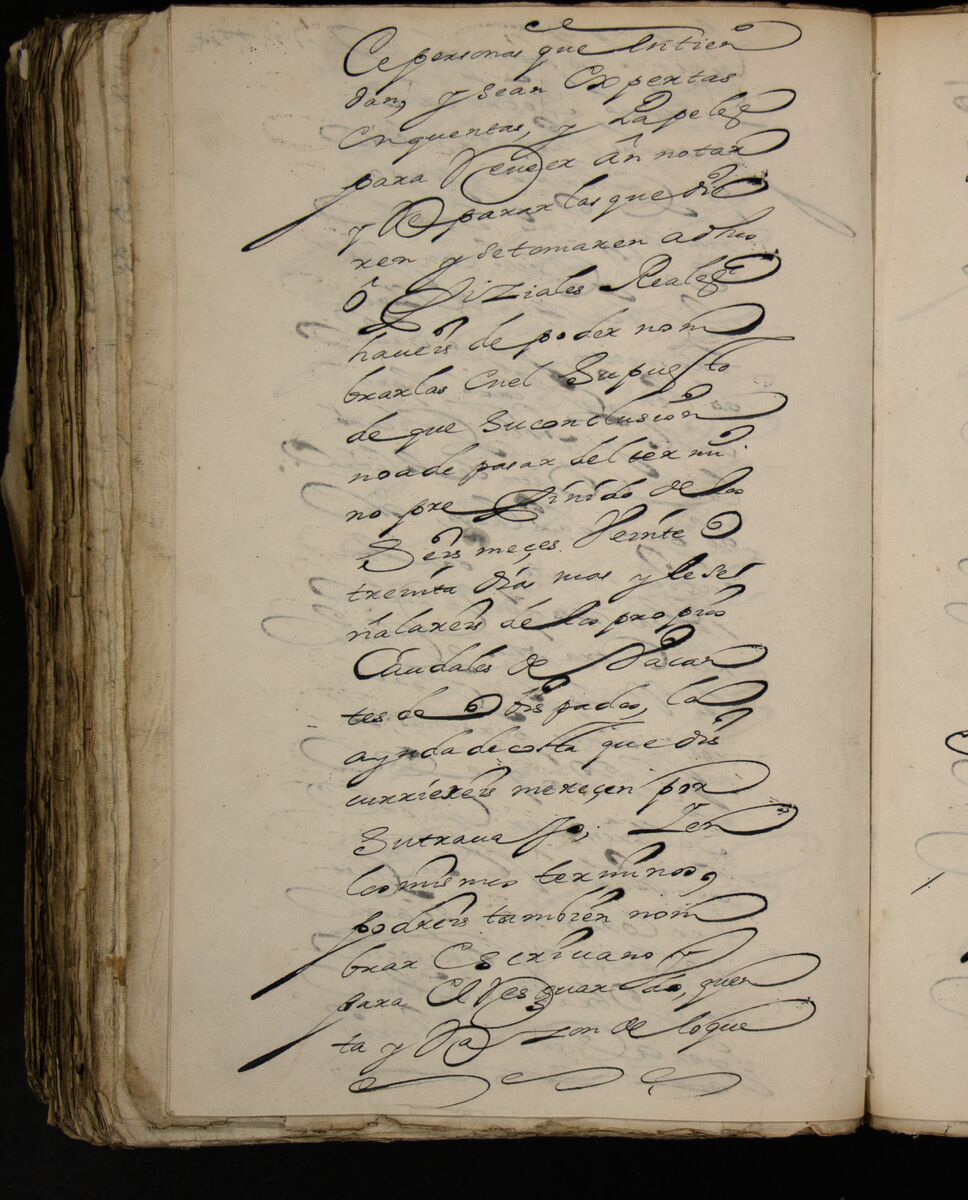 De personas que Entien
dan, y sean Expertas
Enquentas, y Papeles
para Veveer añ notar
y Reparar las que die
ren y setomaren adhos
ôffiziales Reales
haueis de poder nom
brarlas Enel Supuesto
de que Suconclusion
noade pasar del termi
no pre ffinido de los
Seis meçes Veinte O
treinta dias mas y lesse
ñalareis de los propios
Caudales de Vacan
tes de Obispados, la
ayuda de costa que dis
curriereis mereçen por
Sutrauajo, Y en
los mismos terminos,
podreis tambien nom
brar Escriuano
para El Resguardo, quen
ta y Razon de loque